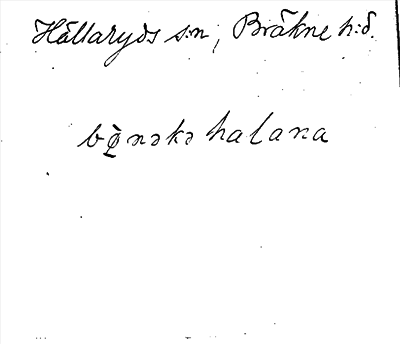 Hällaryds s:n, Bräkne h:d.
bø̀nəkəhalana